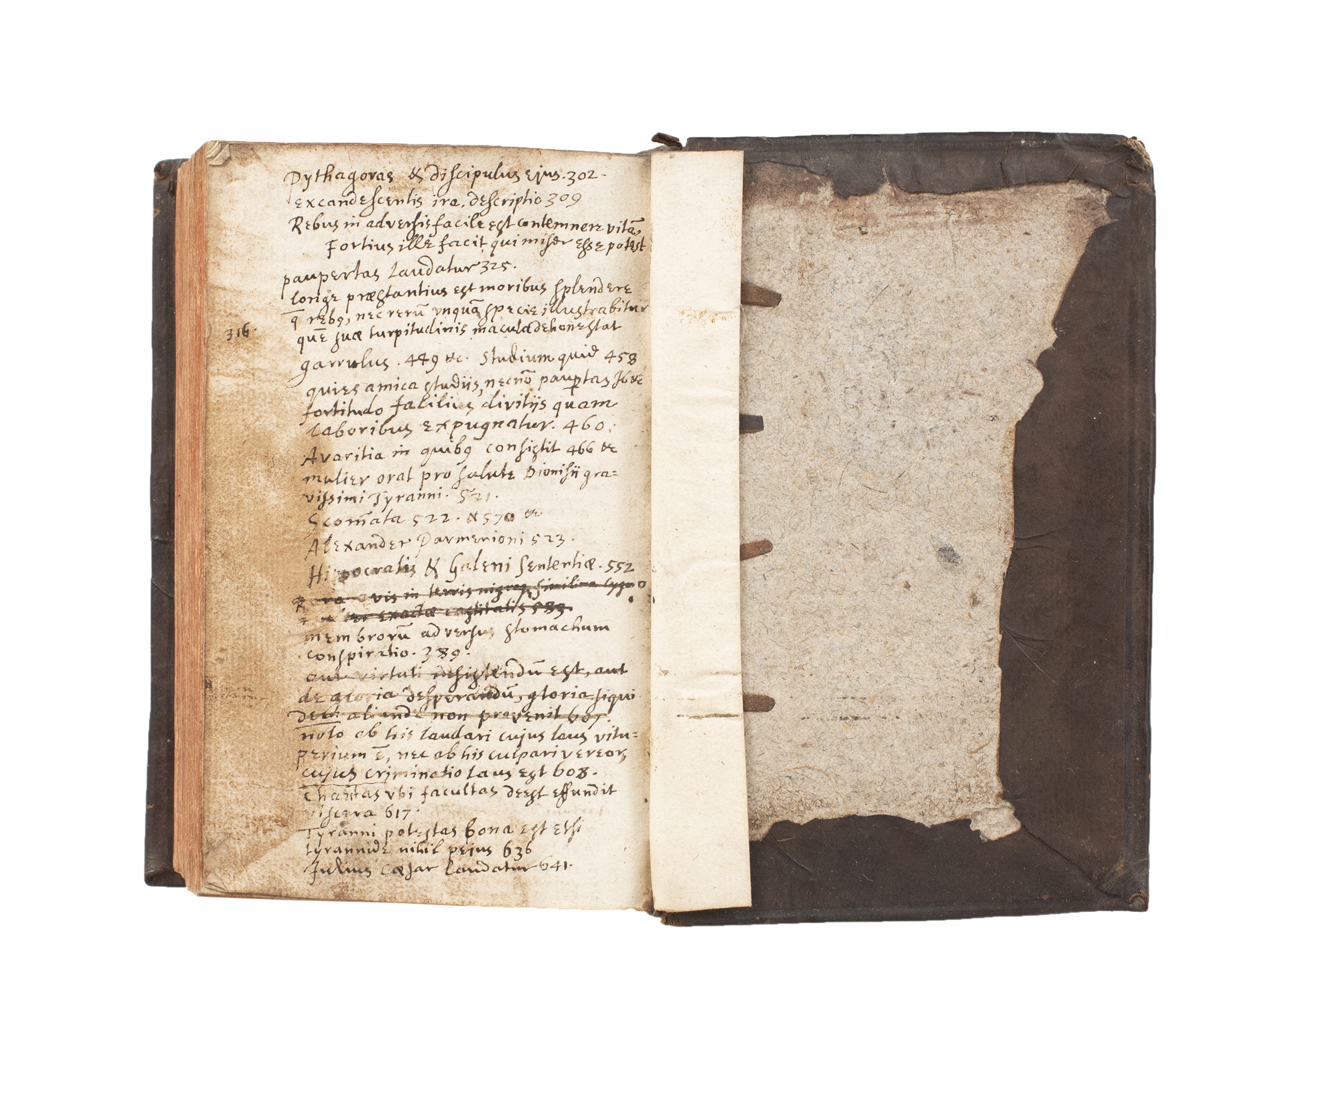 Pythagoras & discipulus ejus. 302.
excandescentis iræ, descriptio 309
Rebus in adversis facile est contemnere vitā,
Fortius ille facit, qui miser esse potest
paupertas laudatur 325.
longe præstantius est moribus splendere
q̄ rebq, nec rerū vnquā specie illustrabitur
316.
quē suæ turpitudinis macula dehonestat
garrulus. 449 &c. Studium quid 458
quies amica studijs, necnō paup̄tas
fortitudo divitijs quam
laboribus expugnatur. 460.
Avaritia in quibq consistit 466 &c
mulier orat pro salute Dionisii gra=
vissimi Tyranni. 521.
Scom̄ata 522. & 570 &c
Alexander Parmenioni 523.
Hippocratis & Galeni Sententiæ. 552
avis in terris nigroq simillima cygno
exactæ castitatis 583.
membrorū adversus stomachum
conspiratio. 389.
aut virtuti insistendū est, aut
de gloria desperandū, gloria siqui
dem aliunde non provenit 607.
nolo ab his laudari cujus laus vitu=
perium ē, nec ab his culpari vereor,
cujus criminatio laus est 608.
Charitas vbi facultas deest effundit
viscera 617.
Tyranni potestas bona est etsi
tyrannide nihil pejus 636
Julius Cæsar laudatur 641.